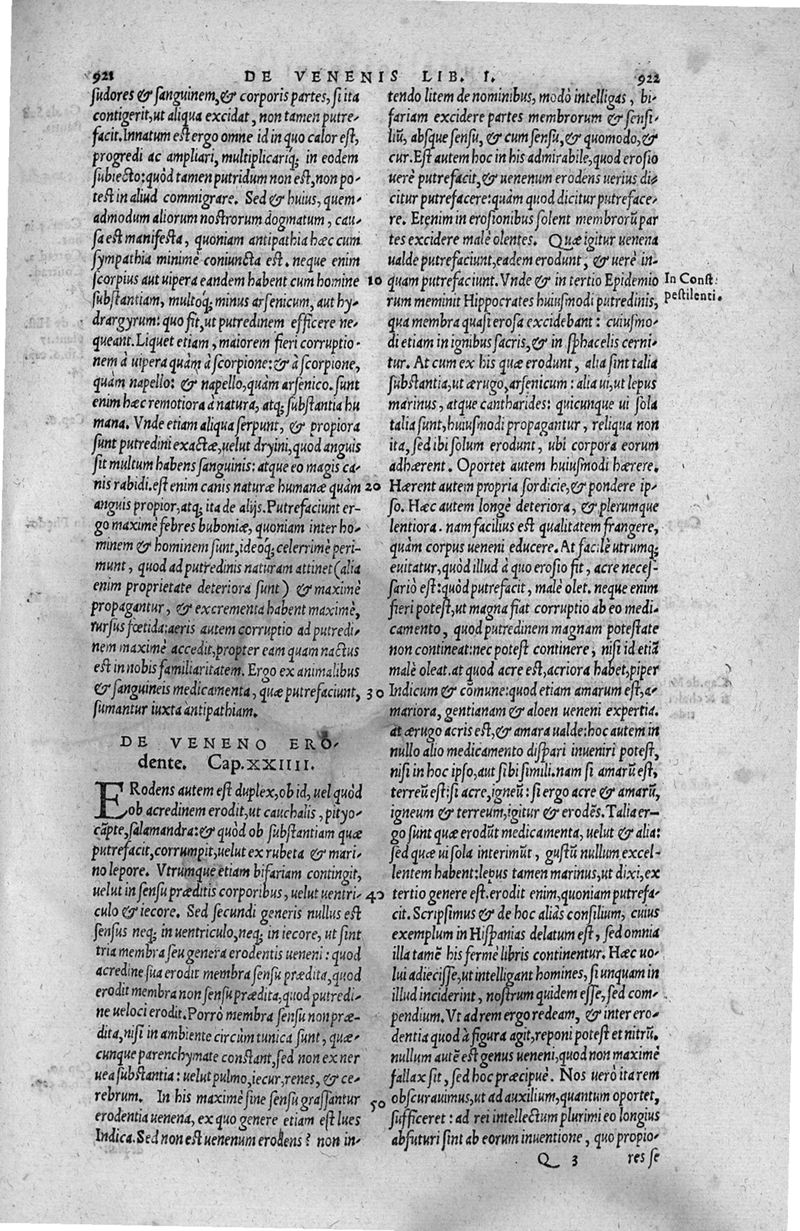 921 DE VENENIS LIB. I. 922
sudores & sanguinem, & corporis partes, si ita
contigerit, ut aliqua excidat, non tamen putre-
facit. Innatum est ergo omne id in quo calor est,
progredi ac ampliari, multiplicariq; in eodem
subiecto: quòd tamen putridum non est, non po-
test in aliud commigrare. Sed & huius, quem-
admodum aliorum nostrorum dogmatum, cau-
sa est manifesta, quoniam antipathia hæc cum
sympathia minimè coniuncta est. neque enim
scorpius aut uipera eandem habent cum homine
substantiam, multoq; minus arsenicum, aut hy-
drargyrum: quo fit, ut putredinem efficere ne-
queant. Liquet etiam, maiorem fieri corruptio-
nem à uipera quàm à scorpione: & à scorpione,
quàm napello: & napello, quàm arsenico. sunt
enim hæc remotiora à natura, atq; substantia hu
mana. Vnde etiam aliqua serpunt, & propiora
sunt putredini exactæ, uelut dryini, quod anguis
sit multum habens sanguinis: atque eo magis ca-
nis rabidi. est enim canis naturæ humanæ quàm
anguis propior, atq; ita de alijs. Putrefaciunt er-
go maximè febres buboniæ, quoniam inter ho-
minem & hominem sunt, ideoq; celerrimè peri-
munt, quod ad putredinis naturam attinet (alia
enim proprietate deteriora sunt) & maximè
propagantur, & excrementa habent maximè,
rursus fœtida: aeris autem corruptio ad putredi-
nem maximè accedit, propter eam quam nactus
est in nobis familiaritatem. Ergo ex animalibus
& sanguineis medicamenta, quæ putrefaciunt,
sumantur iuxta antipathiam.
DE VENENO ERO-
dente. Cap. XXIIII.
ERodens autem est duplex, ob id, uel quòd
ob acredinem erodit, ut cauchalis, pityo-
cãpte, salamandra: & quòd ob substantiam quæ
putrefacit, corrumpit, uelut ex rubeta & mari-
no lepore. Vtrumque etiam bifariam contingit,
uelut in sensu præditis corporibus, uelut uentri-
culo & iecore. Sed secundi generis nullus est
sensus neq; in uentriculo, neq; in iecore, ut sint
tria membra seu genera erodentis ueneni: quod
acredine sua erodit membra sensu prædita, quod
erodit membra non sensu prædita, quod putredi-
ne ueloci erodit. Porrò membra sensu non præ-
dita, nisi in ambiente circùm tunica sunt, quæ-
cunque parenchymate constant, sed non ex ner
uea substantia: uelut pulmo, iecur, renes, & ce-
rebrum. In his maximè sine sensu grassantur
erodentia uenena, ex quo genere etiam est lues
Indica. Sed non est uenenum erodens? non in-
10
20
30
40
50
tendo litem de nominibus, modò intelligas, bi-
fariam excidere partes membrorum & sensi-
liũ, absque sensu, & cum sensu, & quomodo, &
cur. Est autem hoc in his admirabile, quod erosio
uerè putrefacit, & uenenum erodens uerius di-
citur putrefacere: quàm quod dicitur putreface-
re. Etenim in erosionibus solent membrorũ par
tes excidere malè olentes. Quæ igitur uenena
ualde putrefaciunt, eadem erodunt, & uerè in-
quam putrefaciunt. Vnde & in tertio Epidemio
rum meminit Hippocrates huiusmodi putredinis,
qua membra quasi erosa excidebant: cuiusmo-
di etiam in ignibus sacris, & in sphacelis cerni-
tur. At cum ex his quæ erodunt, alia sint talia
substantia, ut ærugo, arsenicum: alia ui, ut lepus
marinus, atque cantharides: quicunque ui sola
talia sunt, huiusmodi propagantur, reliqua non
ita, sed ibi solum erodunt, ubi corpora eorum
adhærent. Oportet autem huiusmodi hærere.
Hærent autem propria sordicie, & pondere ip-
so. Hæc autem longè deteriora, & plerumque
lentiora. nam facilius est qualitatem frangere,
quàm corpus ueneni educere. At facilè utrumq;
euitatur, quòd illud à quo erosio fit, acre neces-
sariò est: quòd putrefacit, malè olet. neque enim
fieri potest, ut magna fiat corruptio ab eo medi-
camento, quod putredinem magnam potestate
non contineat: nec potest continere, nisi id etiã
malè oleat. at quod acre est, acriora habet, piper
Indicum & cõmune: quod etiam amarum est, a-
mariora, gentianam & aloen ueneni expertia.
at ærugo acris est, & amara ualde: hoc autem in
nullo alio medicamento dispari inueniri potest,
nisi in hoc ipso, aut sibi simili. nam si amarũ est,
terreũ est: si acre, igneũ: si ergo acre & amarũ,
igneum & terreum, igitur & erodẽs. Talia er-
go sunt quæ erodũt medicamenta, uelut & alia:
sed quæ ui sola interimũt, gustũ nullum excel-
lentem habent: lepus tamen marinus, ut dixi, ex
tertio genere est. erodit enim, quoniam putrefa-
cit. Scripsimus & de hoc aliàs consilium, cuius
exemplum in Hispanias delatum est, sed omnia
illa tamẽ his fermè libris continentur. Hæc uo-
lui adiecisse, ut intelligant homines, si unquam in
illud inciderint, nostrum quidem esse, sed com-
pendium. Vt ad rem ergo redeam, & inter ero-
dentia quod à figura agit, reponi potest et nitrũ.
nullum autẽ est genus ueneni, quod non maximè
fallax sit, sed hoc præcipuè. Nos uerò ita rem
obscurauimus, ut ad auxilium, quantum oportet,
sufficeret: ad rei intellectum plurimi eo longius
absuturi sint ab eorum inuentione, quo propio-
Q 3 res se
In Const.
pestilenti.